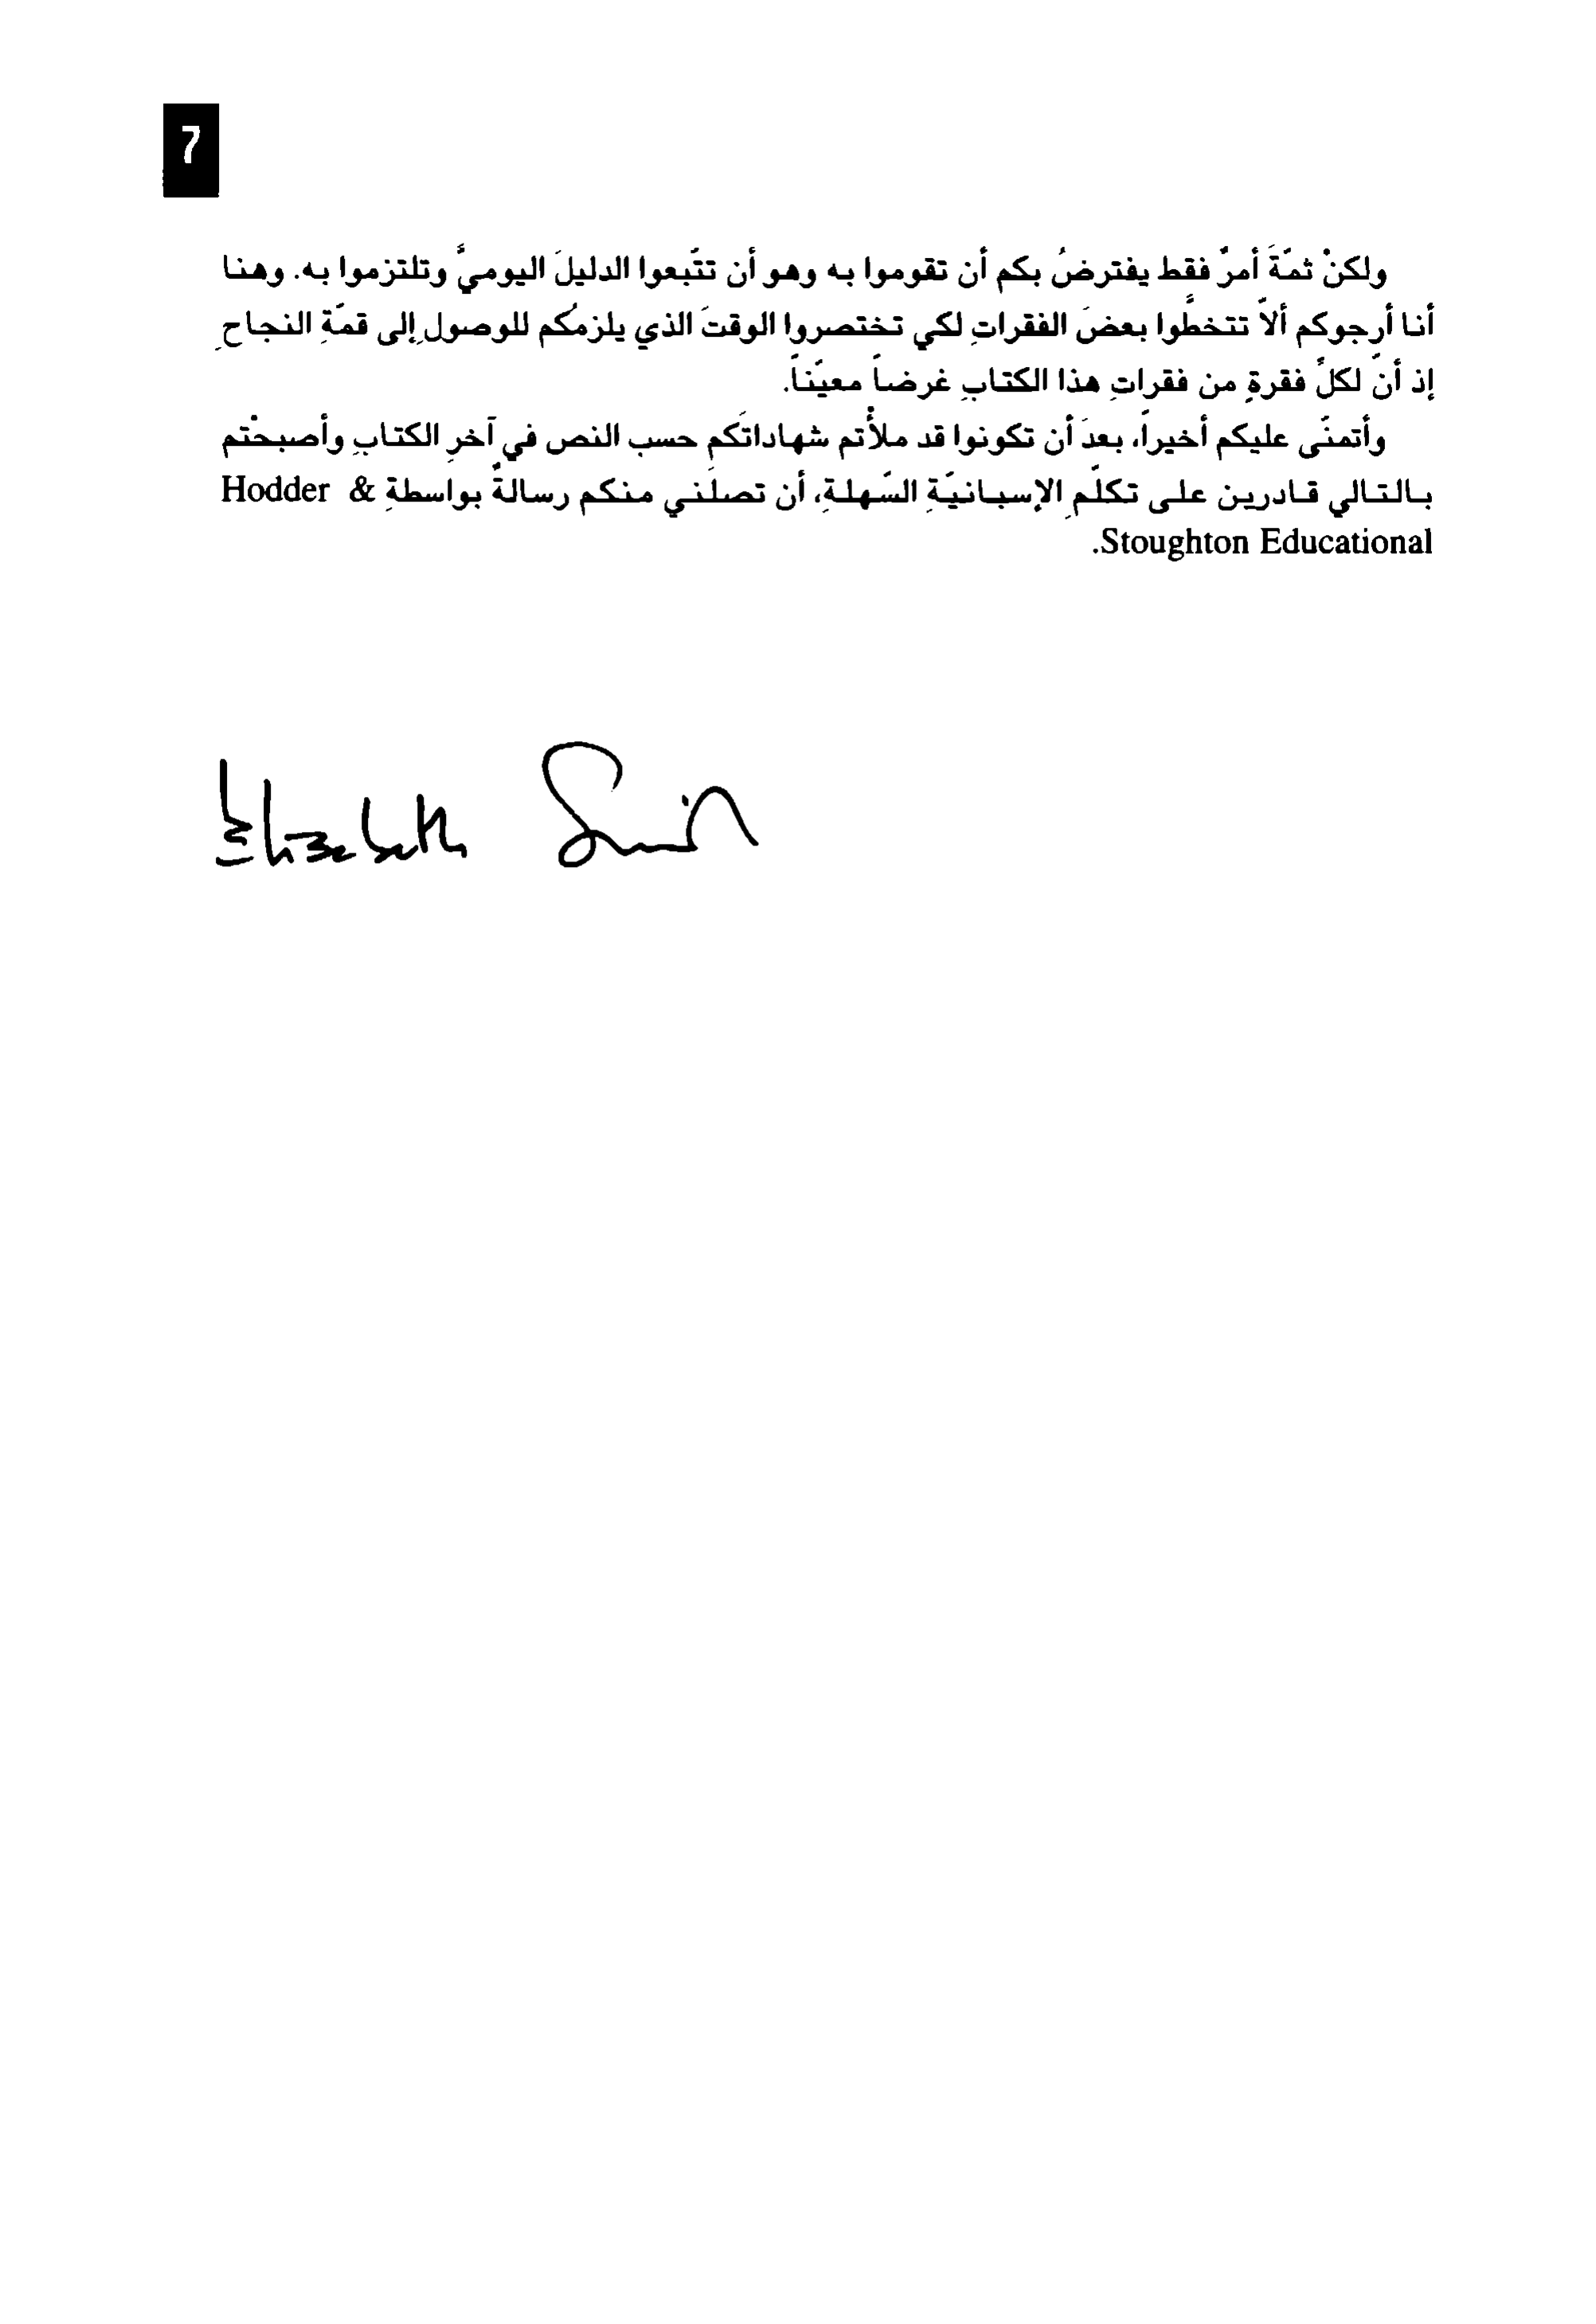 7
ولكنْ ثمّةَ أمرٌ فقط يفترضُ بكم أن تقوموا به وهو أن تتّبعوا الدليلَ اليوميَّ وتلتزموا به. وهنا
أنا أرجوكم ألاّ تتخطّوا بعضَ الفقراتِ لكي تختصروا الوقتَ الذي يلزمُكم للوصولِ إلى قمّةِ النجاحِ
إذ أنّ لكلِّ فقرةٍ من فقراتِ هذا الكتابِ غرضاً معيّناً.
وأتمنّى عليكم أخيراً، بعدَ أن تكونوا قد ملأْتم شهاداتَكم حسب النص في آخرِ الكتابِ وأصبحْتم
بالتالي قادرين على تكلّمِ الإسبانيّةِ السّهلةِ، أن تصلَني منكم رسالةٌ بواسطةِ Hodder &
Stoughton Educational.
Elizabeth Smith